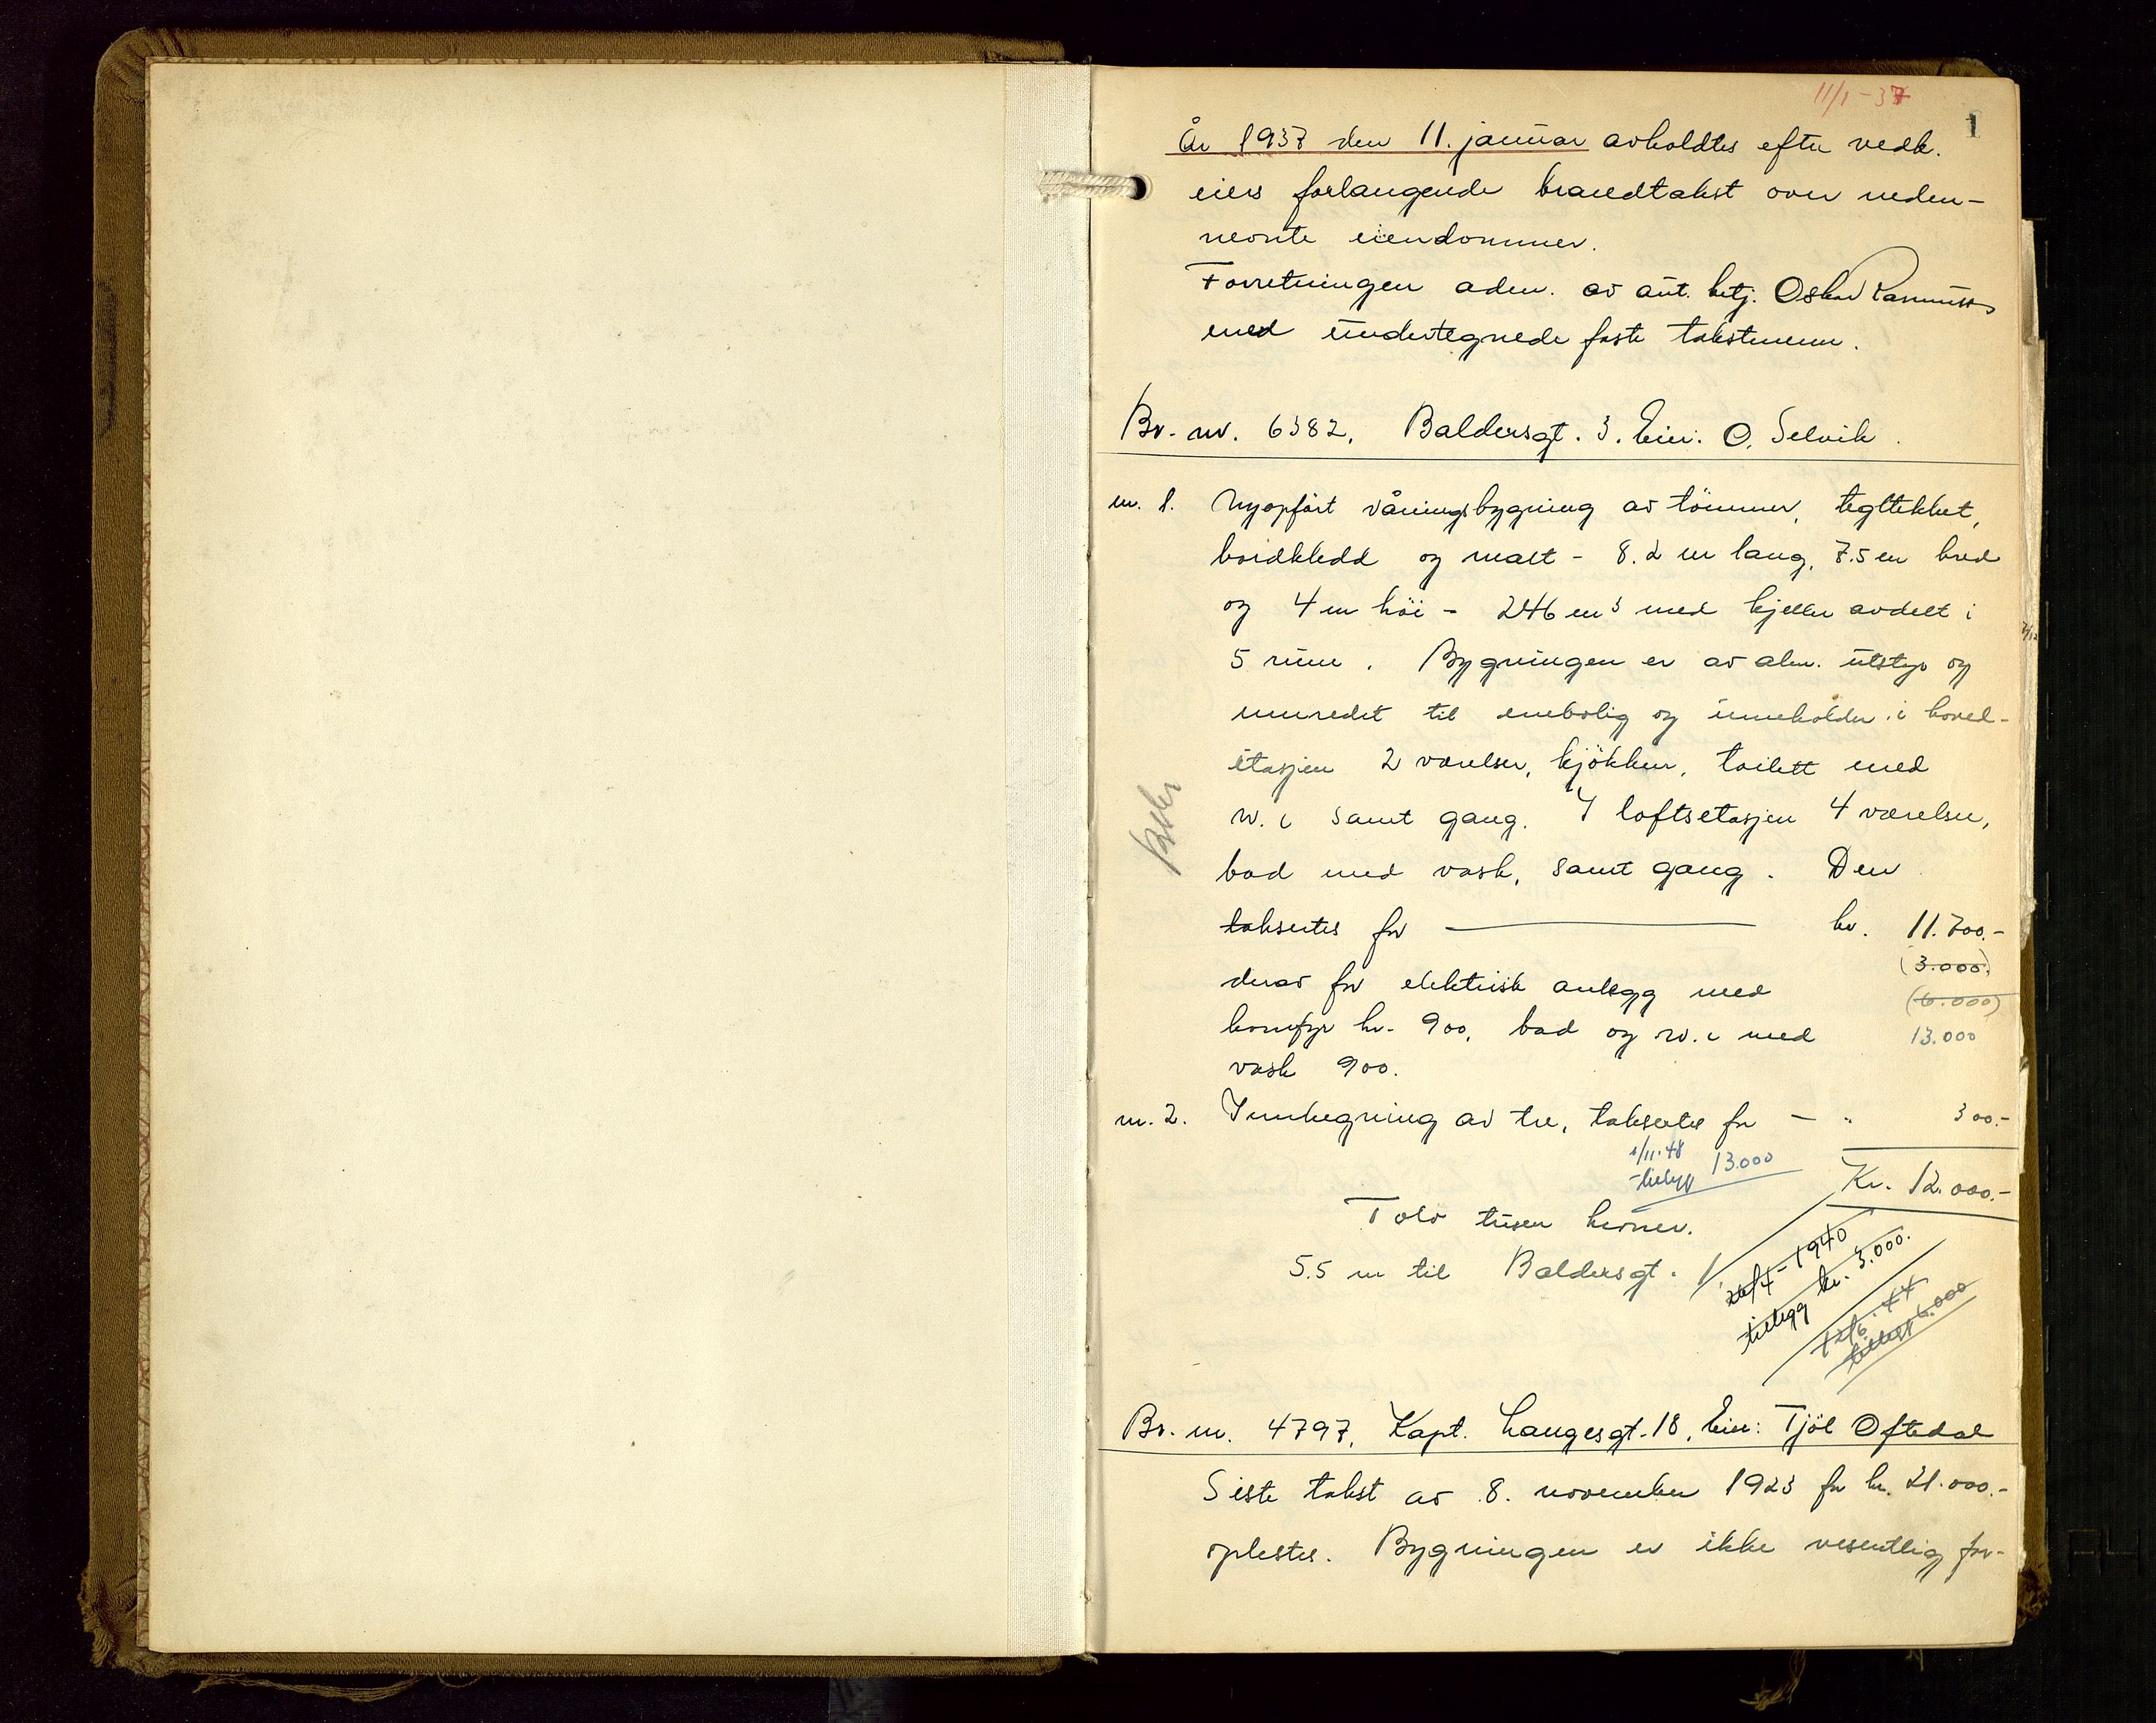 11/1-37
1
År 1937 den 11. januar avholdtes efter vedk.
eiers forlangende brandtakst over neden-
nevnte eiendommer.
Forretningen adm. av aut. betj. Oskar Rasmussen
med undertegnede faste takstmenn.
Br. nr. 6382. Baldersgt. 3. Eier: O. Selvik.
nr. 1. Nyopført våningsbygning av tömmer, tegltekket,
bordkledd og malt - 8.2 m lang, 7.5 m bred
og 4 m höi - 246 m³ med kjeller avdelt i
5 rum. Bygningen er av alm. utstyr og
innredet til enebolig og inneholder i hoved-
etasjen 2 værelser, kjökken, toilett med
w.c samt gang. I loftsetasjen 4 værelser,
bad med vask, samt gang. Den
taksertes for kr. 11.700.-
(3.000)
derav for elektrisk anlegg med
(6.000)
komfyr kr. 900, bad og w.c med
13.000
vask 900.
nr. 2. Innhegning av tre, taksertes for - " 300.-
1/11.48
tillegg 13.000
Kr. 12.000.-
Tolv tusen kroner.
5.5 m til Baldersgt. 1.
26/4-1940
tillegg kr. 3.000.
.44
tillegg 6.000
Br. nr. 4797. Kapt. Langesgt. 18. Eier: Tjöl Oftedal
Siste takst av 8. november 1923 for kr. 21.000.-
oplestes. Bygningen er ikke vesentlig for-